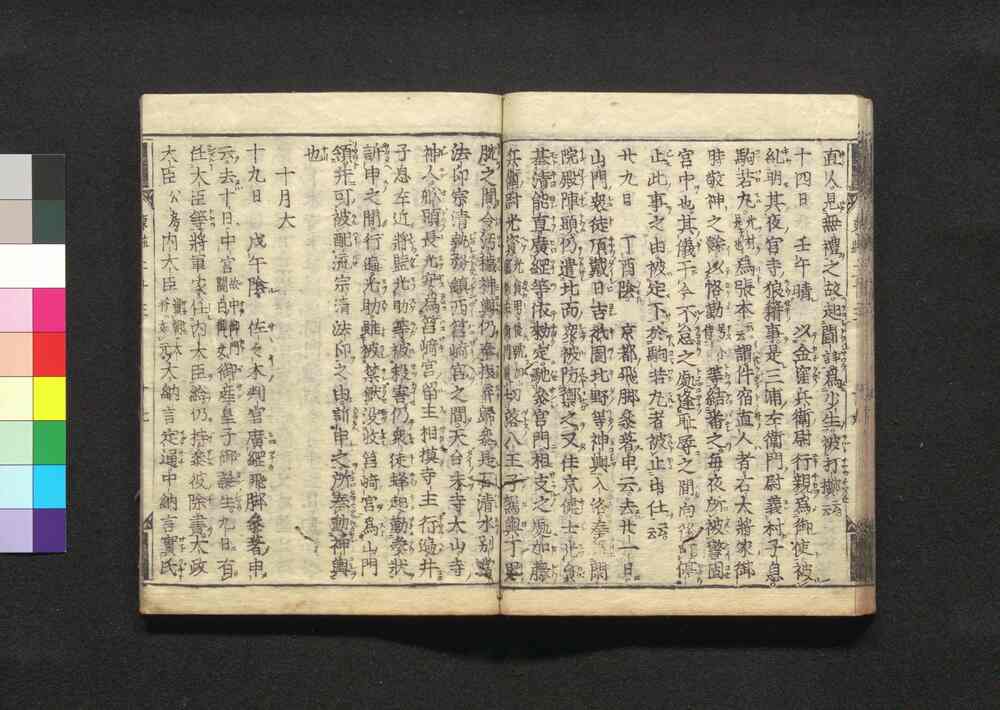 直人見無禮之故起鬪諍爲少生被打擲云云
十四日　壬午晴　以金窪兵衛尉行親爲御使被
糺明其夜官寺狼籍事是三浦左衛門尉義村子息
駒若丸光村是也爲張本云云謂件宿直人者右大將家御
時敬神之餘以恪勤等結番之毎夜所被警固
宮中也其儀于今不怠之處逢耻辱之間向後可停
止此事之由被定下於駒若丸者被止出仕云云
廿九日　丁酉陰　京都飛脚參著申云去廿一日
山門衆徒頂戴日吉祇園北野等神輿入洛奉
院殿陣頭仍遣北面衆被防禦之又住京健士
基清能直廣經等依勅定馳參官門相支之處加藤
兵衛尉光資切落八王子駕輿丁
肱之間令汚穢神輿仍奉振弃歸參是石清水別當
法印宗清執務鎮西筥崎宮之間天台末寺大山寺
神人船頭長光安爲筥崎宮留主相模寺主行遍并
子息左近將監光助等被殺害仍衆徒蜂起勒奏狀
訴申之間行遍光助雖被禁獄没收筥崎宮爲山門
領并可被配流宗清法印之由訴申之所奉動神輿
也
十月大
十九日　戊午陰　佐々木判官廣綱飛脚參著申
云去十日中宮御産皇子御誕生九日有
任大臣等將軍家任内大臣給仍持參彼除書太政
大臣公房内大臣大納言定通中納言實氏